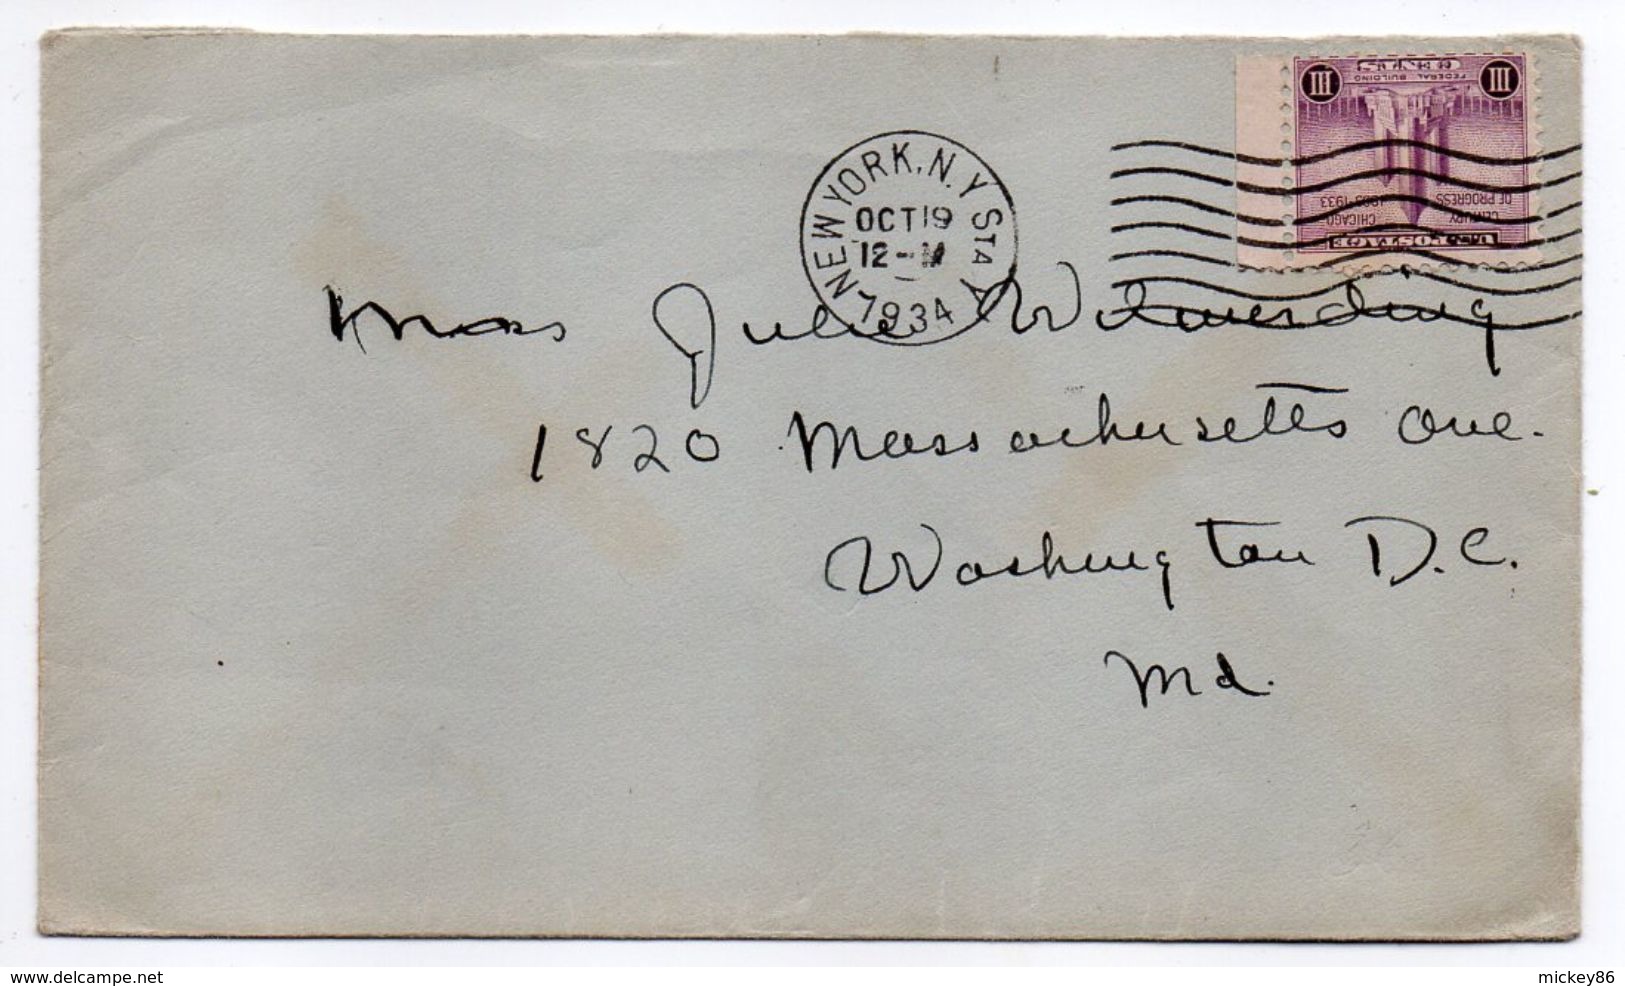 III FEDERAL BUILDING III
CHICAGO 1833-1933
CENTURY OF PROGRESS
U.S. POSTAGE
NEW YORK, N.Y. STA Y
OCT 19
12-M
1934
Miss Julie Wilmerding
1820 Massachusetts Ave.
Washington D.C.
Md.
delcampe.net
mickey86